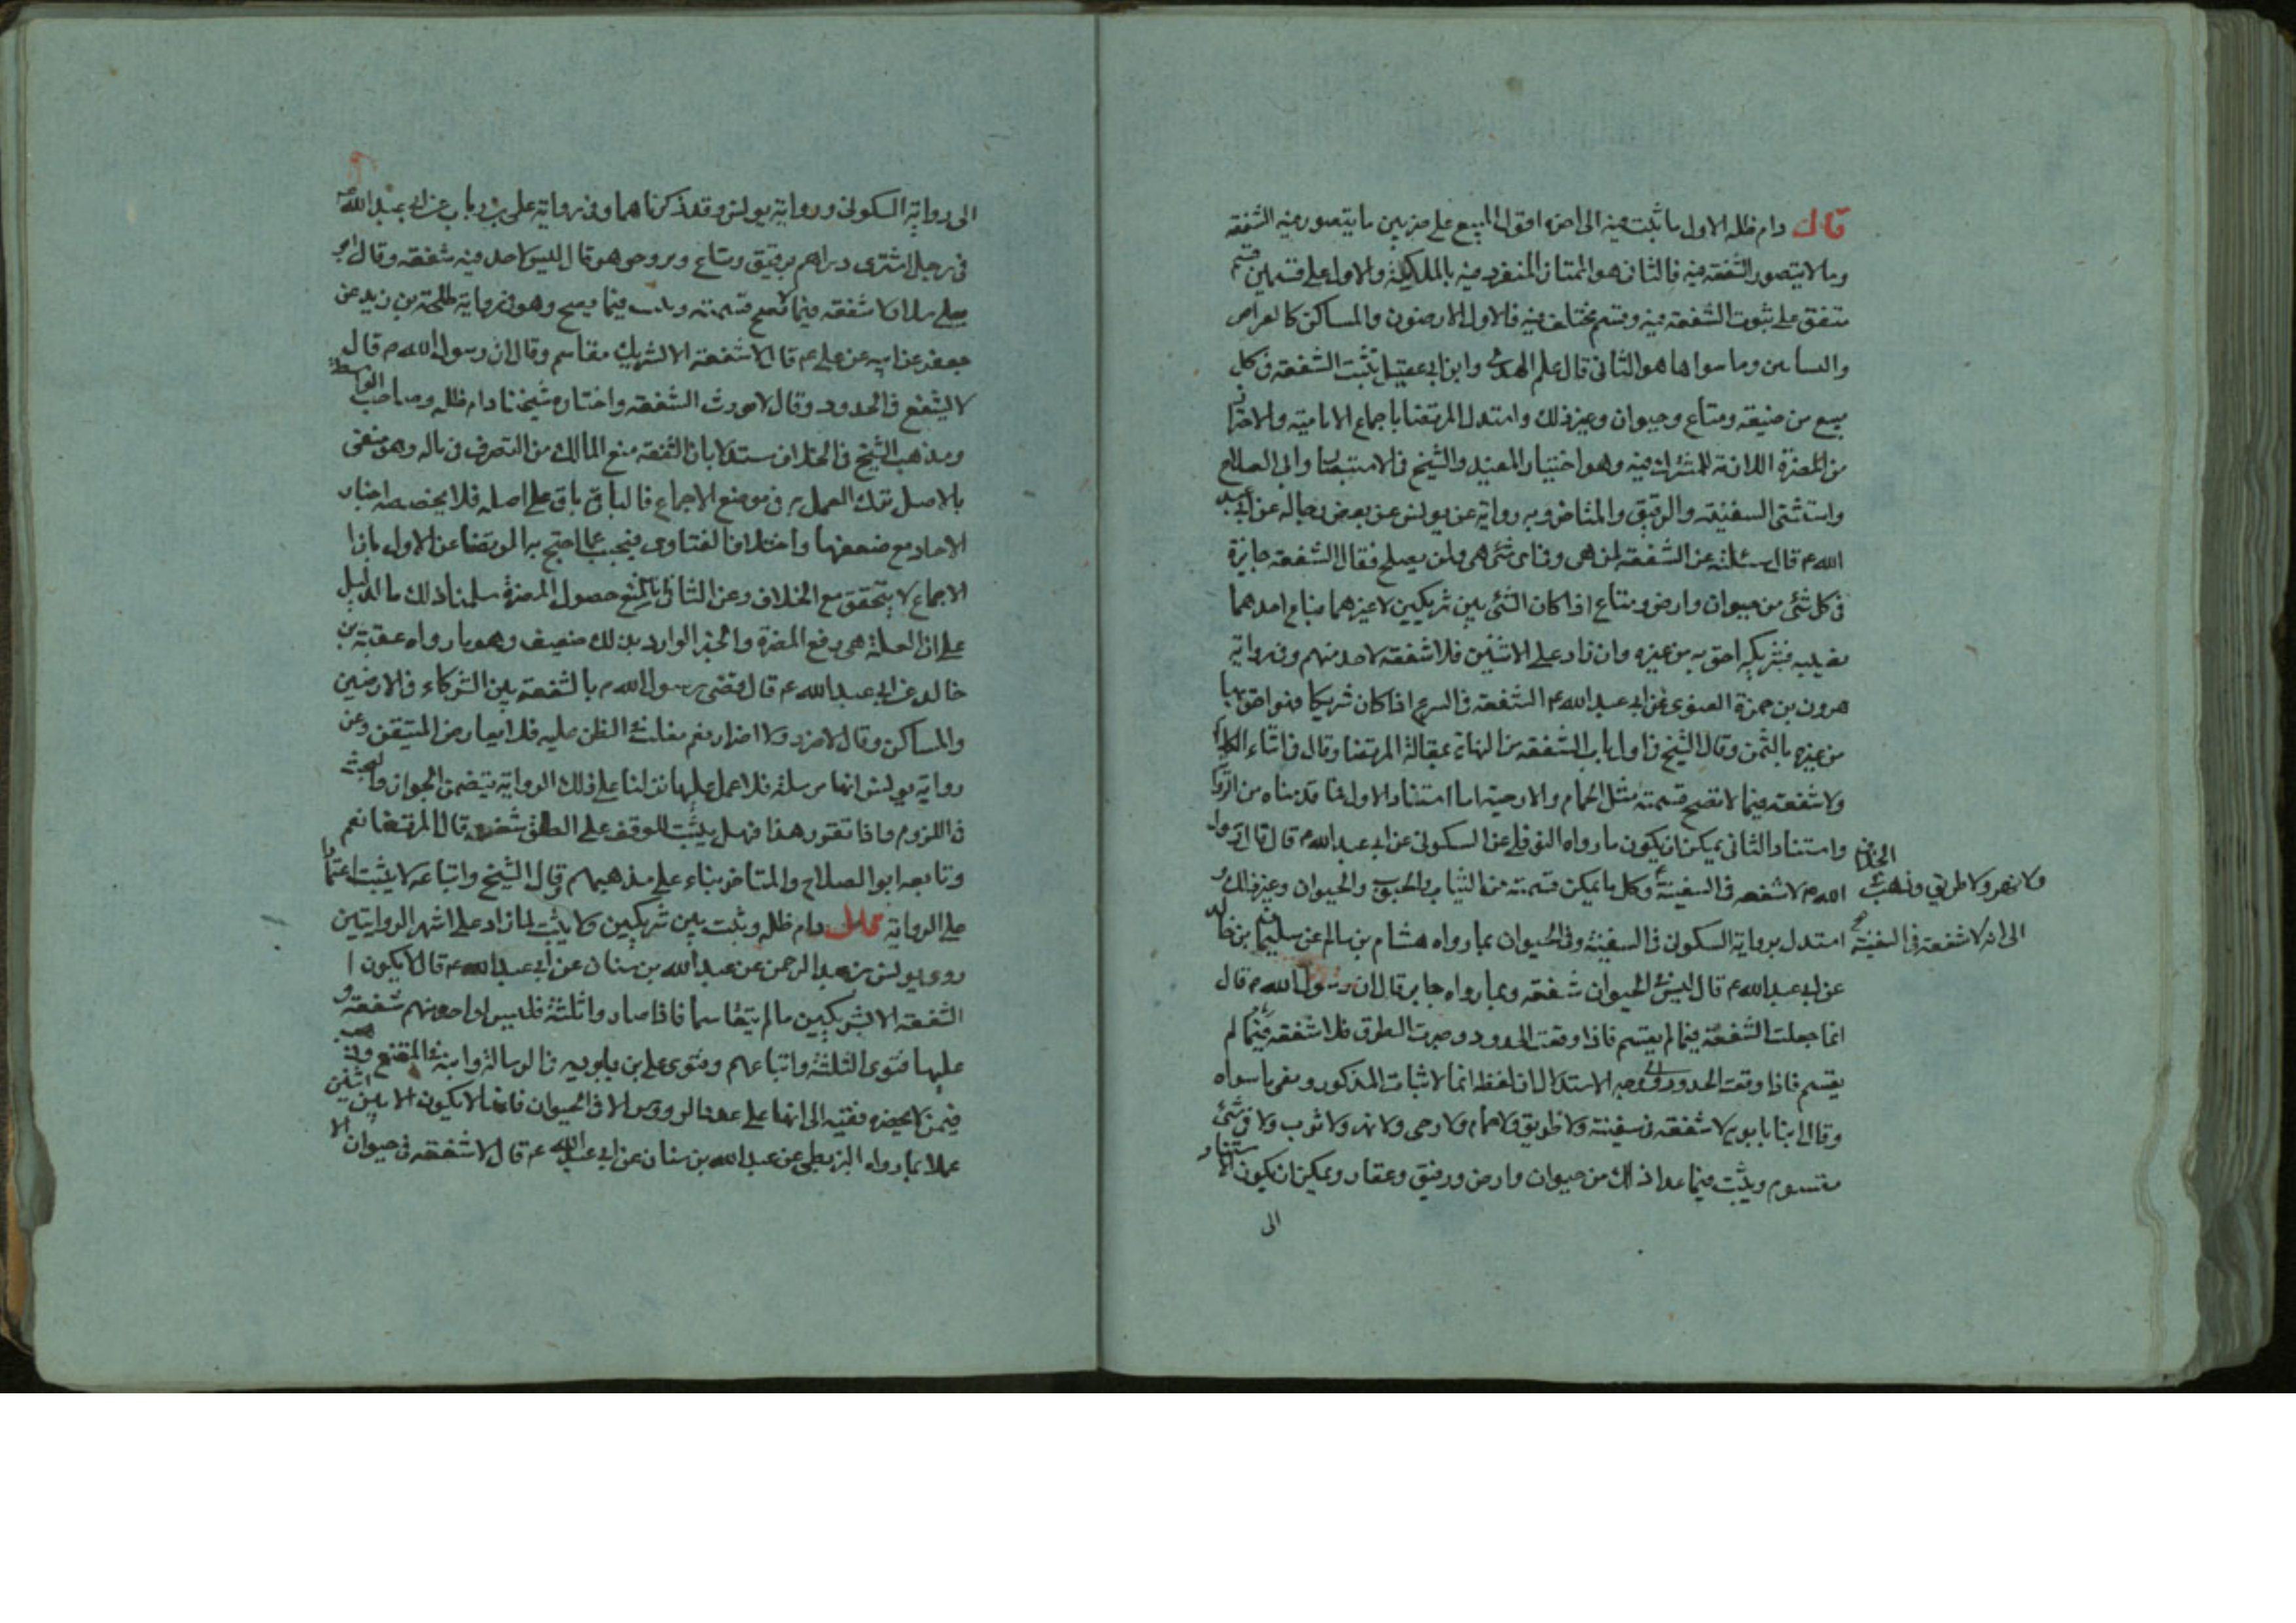 قال دام ظله الاول ما ثبت فيه الى اخره اقول المبيع على ضربين ما يتصور فيه الشفعة
وما لا يتصور الشفعة فيه فالثانى هو الممتاز المنفرد فيه بالملكية والاول على قسمين قسم
متفق على ثبوت الشفعة فيه وقسم مختلف فيه فالاول الارضون والمساكن كالعراص
والبساتين وما سواها هو الثانى قال علم الهدى وابن ابى عقيل يثبت الشفعة فى كل
مبيع من ضيعة ومتاع وحيوان وغير ذلك واستدل المرتضى باجماع الامامية والاحتراز
من المضرة اللازمة للمشترك فيه وهو اختيار المفيد والشيخ فى الاستبصار وابى الصلاح
واستثنى السفينة والرقيق والمتاخر وبه رواية عن يونس عن بعض رجاله عن ابى عبد
الله ع قال سئلته عن الشفعة لمن هى وفى اى شئ هى ولمن يصلح فقال الشفعة جايزة
فى كل شئ من حيوان وارض ومتاع اذا كان الشئ بين شريكين لا غيرهما فباع احدهما
نصيبه فشريكه احق به من غيره وان زاد على الاثنين فلا شفعة لاحد منهم وفى رواية
هرون بن حمزة الغنوى عن ابى عبد الله ع الشفعة فى اذا كان شريكا فهو احق بها
من غيره بالثمن وقال الشيخ فى اول باب الشفعة من النهاية بمقالة المرتضى وقال فى اثناء الكلام
ولا شفعة فيما لا تصح قسمته مثل الحمام والارحية اما استناد الاول فما قدمناه من الروايا
واستناد الثانى يمكن ان يكون ما رواه النوفلى عن السكونى عن ابى عبد الله ع قال قال رسول
الله ص لا شفعة فى السفينة وكل ما يمكن قسمته من الثياب والحبوب والحيوان وغير ذلك و
استدل برواية السكونى فى السفينة وفى الحيوان بما رواه هشام بن سالم عن سليمان بن خالد
ولا نهر ولا طريق وذهب
الى انه لا شفعة فى السفينة
عن ابى عبد الله ع قال ليس فى الحيوان شفعة وبما رواه جابر قال ان رسول الله ص قال
انما جعلت الشفعة فيما لم يقسم فاذا وقعت الحدود وصرفت الطرق فلا شفعة فيما لم
يقسم فاذا وقعت الحدود وجه الاستدلال ان لفظة انما لاثبات المذكور ونفى ما سواه
وقال ابنا بابويه لا شفعة فى سفينة ولا طريق ولا حمام ولا رحى ولا نهر ولا ثوب ولا فى شئ
مقسوم ويثبت فيما عدا ذلك من حيوان وارض ورقيق وعقار ويمكن ان يكون استناد
الى
الى رواية السكونى ورواية يونس وقد ذكرناهما وفى رواية على بن رباب عن ابى عبد الله ع
فى رجل اشترى دراهم برقيق ومتاع وبز وجوهر قال ليس لاحد فيه شفعة وقال ابو
يعلى سلار لا شفعة فيما لا تصح قسمته ويثبت فيما يصح وهو فى رواية طلحة بن زيد عن
جعفر عن ابيه عن على ع قال لا شفعة الا لشريك مقاسم وقال ان رسول الله ص قال
لا يشفع فى الحدود وقال لا تورث الشفعة واختاره شيخنا دام ظله وصاحب الواسطة
ومذهب الشيخ فى الخلاف مستدلا بان الشفعة منع المالك من التصرف فى ماله وهو منفى
بالاصل ترك العمل به فى موضع الاجماع فالباقى باق على اصله فلا يخصصه اخبار
الاحاد مع ضعفها واختلاف الفتاوى فنجيب عما احتج به المرتضى عن الاول بان
الاجماع لا يتحقق مع الخلاف وعن الثانى بالمنع حصول المضرة سلمنا ذلك ما الدليل
على ان العلة هى دفع المضرة والخبر الوارد بذلك ضعيف وهو ما رواه عقبة بن
خالد عن ابى عبد الله ع قال قضى رسول الله ص بالشفعة بين الشركاء فى الارضين
والمساكن وقال لا ضرر ولا اضرار نعم يغلب الظن عليه فلا يعارض المتيقن وعن
رواية يونس انها مرسلة فلا عمل عليها نزلنا على ذلك الرواية يتضمن الجواز والبحث
فى اللزوم واذا تقرر هذا فهل يثبت للوقف على الطلق شفعة قال المرتضى نعم
وتابعه ابو الصلاح والمتاخر بناء على مذهبهم وقال الشيخ واتباعه لا يثبت اعتمادا
على الرواية قال دام ظله ويثبت بين شريكين ولا يثبت لما زاد على اشهر الروايتين
روى يونس بن عبد الرحمن عن عبد الله بن سنان عن ابى عبد الله ع قال لا يكون ا
الشفعة الا لشريكين ما لم يتقاسما فاذا صاروا ثلثة فليس لواحد منهم شفعة و
عليها فتوى الثلثة واتباعهم وفتوى على بن بابويه فى الرسالة وابنه فى المقنع وذهب
فيمن لا يحضره فقيه الى انها على عدد الرؤوس الا فى الحيوان فانها لا يكون الا بين اثنين
عملا بما رواه البزنطى عن عبد الله بن سنان عن ابى عبد الله ع قال لا شفعة فى حيوان الا